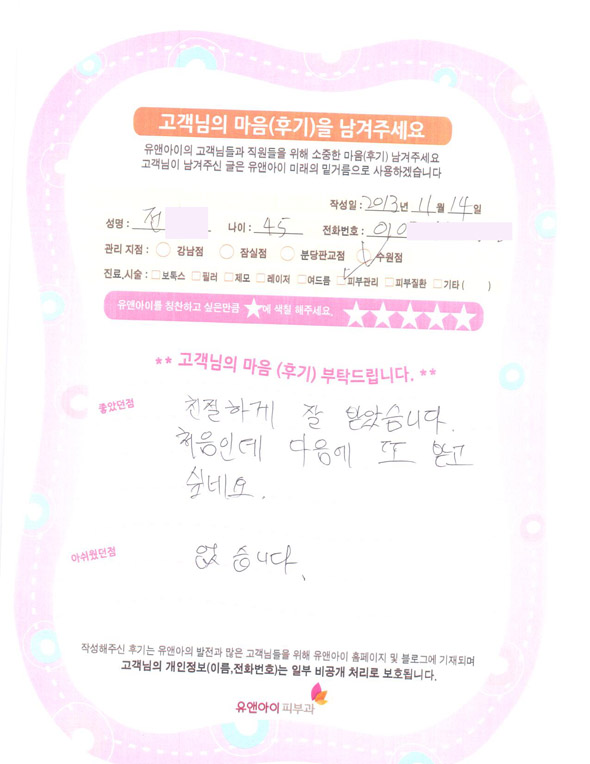 고객님의 마음(후기)을 남겨주세요
유앤아이의 고객님들과 직원들을 위해 소중한 마음(후기) 남겨주세요
고객님이 남겨주신 글은 유앤아이 미래의 밑거름으로 사용하겠습니다
작성일 : 2013년 11월 14일
성명 : 전 나이 : 45 전화번호 : 010
관리 지점 : 강남점 잠실점 분당판교점 수원점
진료,시술 : 보톡스 필러 제모 레이저 여드름 피부관리 피부질환 기타 ( )
유앤아이를 칭찬하고 싶은만큼 ★에 색칠 해주세요. ★★★★★
** 고객님의 마음 (후기) 부탁드립니다. **
좋았던점 친절하게 잘 받았습니다.
처음인데 다음에 또 받고
싶네요.
아쉬웠던점 없습니다.
작성해주신 후기는 유앤아의 발전과 많은 고객님들을 위해 유앤아이 홈페이지 및 블로그에 기재되며
고객님의 개인정보(이름,전화번호)는 일부 비공개 처리로 보호됩니다.
유앤아이 피부과